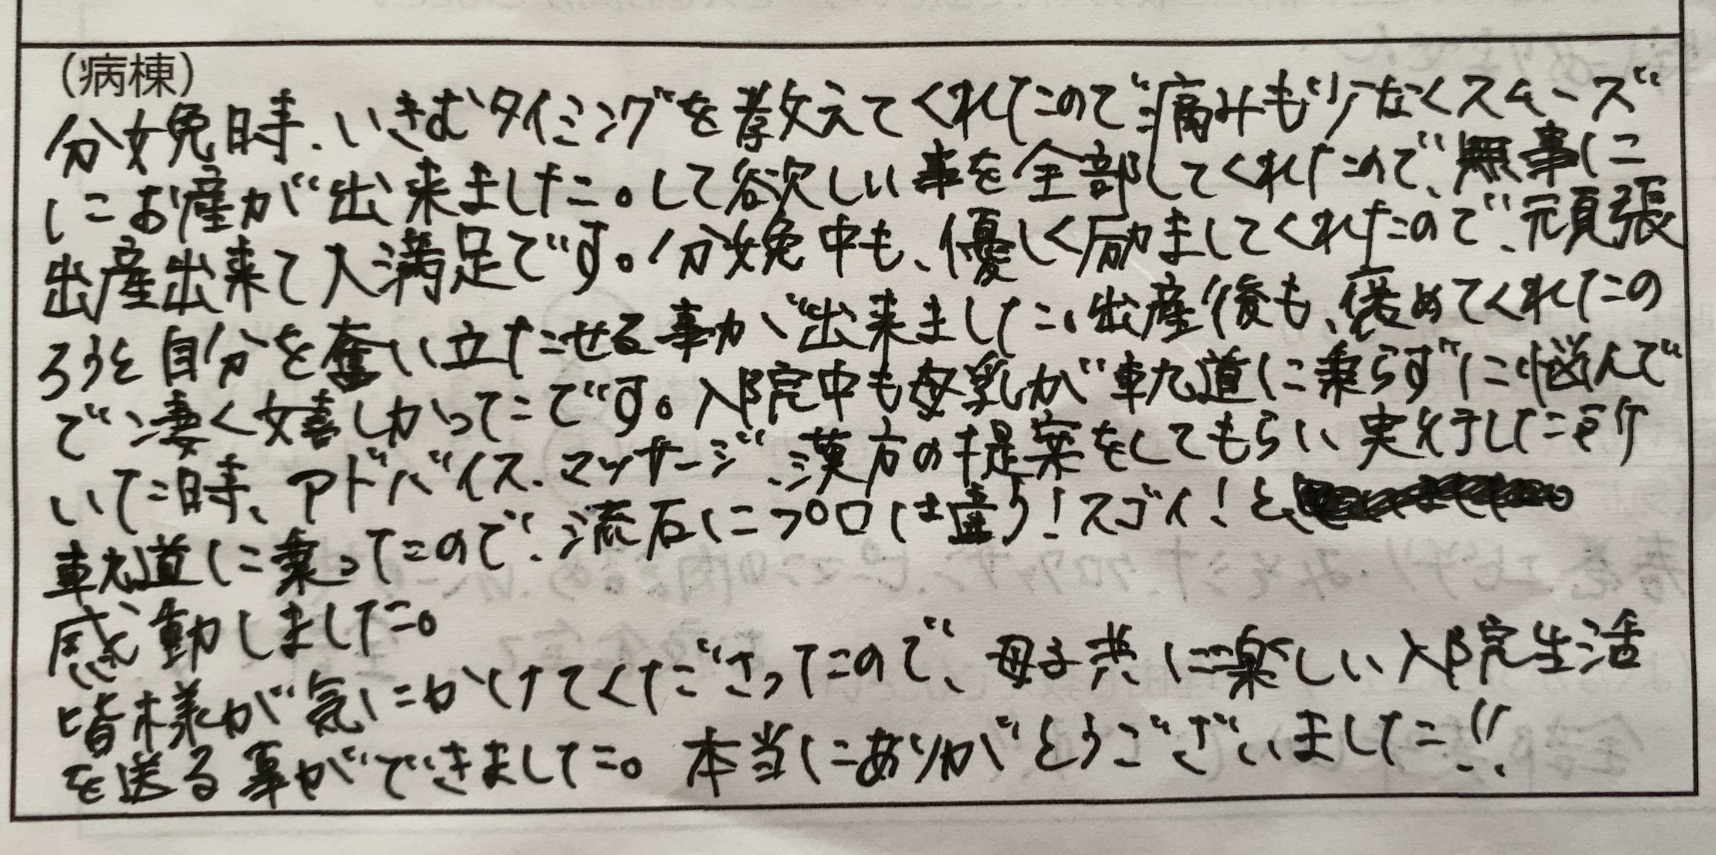 (病棟)
分娩時、いきむタイミングを教えてくれたので痛みも少なくスムーズ
にお産が出来ました。して欲しい事を全部してくれたので、無事に
出産出来て大満足です。分娩中も、優しく励ましてくれたので、頑張
ろうと自分を奮い立たせる事が出来ました。出産後も、褒めてくれたの
で凄く嬉しかったです。入院中も母乳が軌道に乗らずに悩んで
いた時、アドバイス、マッサージ、漢方の提案をしてもらい実行した所
軌道に乗ったので、流石にプロは違う!スゴイ!と
感動しました。
皆様が気にかけてくださったので、母子共に楽しい入院生活
を送る事ができました。本当にありがとうございました!!